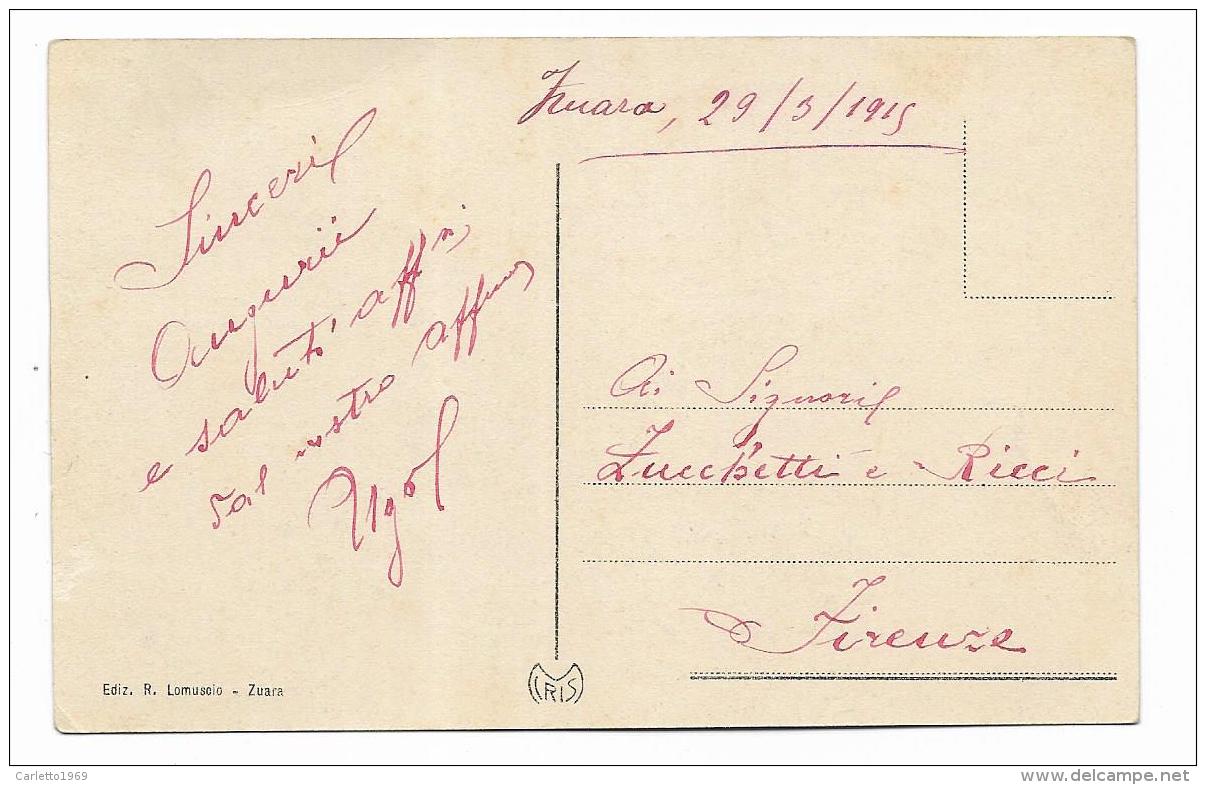 Zuara, 29/3/1915
Sinceri
Augurii
e saluti affni
dal vostro affmo
Ugo
Ai Signori
Zucchetti e Ricci
Firenze
Ediz. R. Lomuscio - Zuara
CRIS
Carletto1969
www.delcampe.net